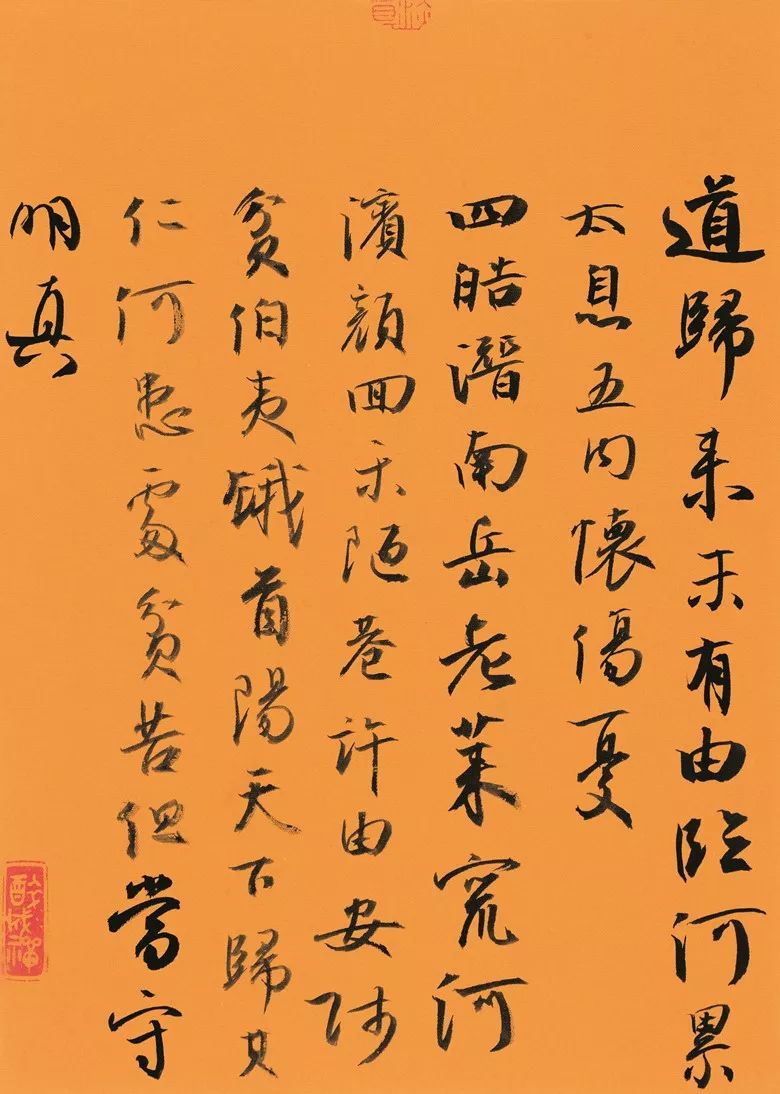 道歸來未有由臨河累
太息五內懷傷憂
四皓潛南岳老萊竄河
濱顏回樂陋巷許由安賤
貧伯夷餓首陽天下歸其
仁何患處貧苦但當守
明真